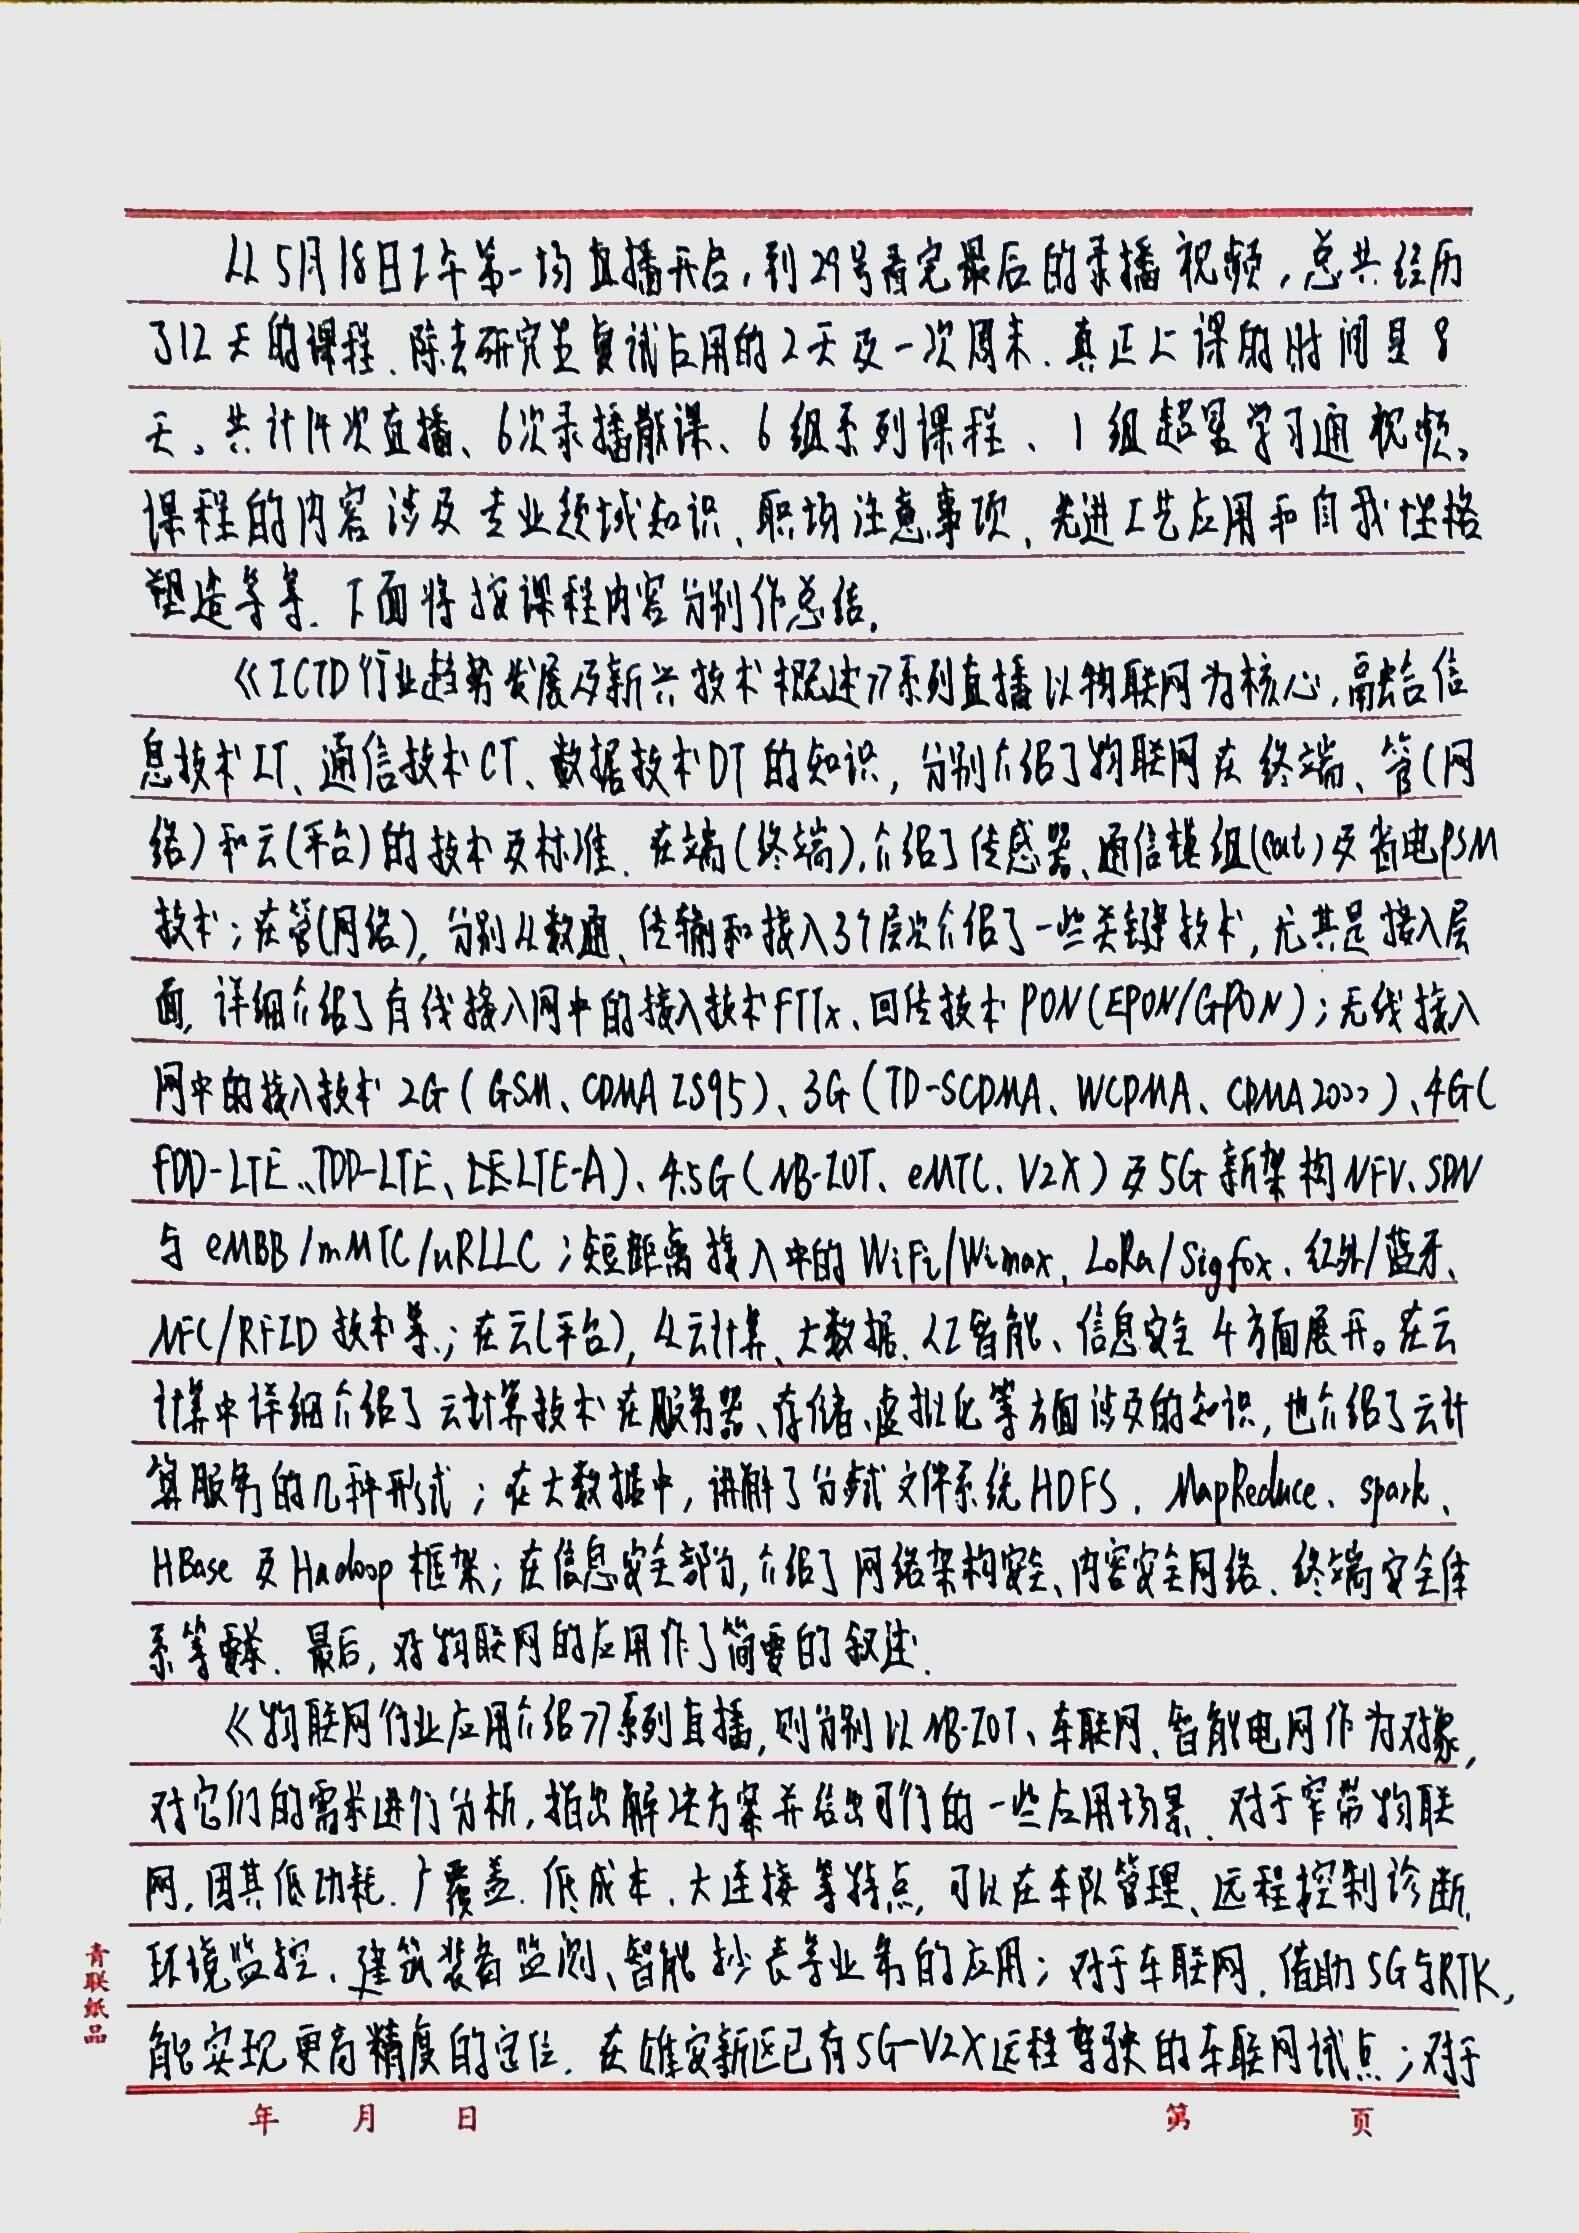 从5月18日上午第一场直播开启，到29号看完最后的录播视频，总共经历
了12天的课程。除去研究生复试占用的2天及一次周末，真正上课的时间是8
天。共计14次直播、6次录播散课、6组系列课程、1组超星学习通视频。
课程的内容涉及专业领域知识、职场注意事项、先进工艺应用和自我性格
塑造等等。下面将按课程内容分别作总结。
《ICTD行业趋势发展及新兴技术概述》系列直播以物联网为核心，融合信
息技术IT、通信技术CT、数据技术DT的知识，分别介绍了物联网在终端、管(网
络)和云(平台)的技术及标准。在端(终端)，介绍了传感器、通信模组(cat)及省电PSM
技术；在管(网络)，分别从数通、传输和接入3个层次介绍了一些关键技术，尤其是接入层
面，详细介绍了有线接入网中的接入技术FTTx、回传技术PON(EPON/GPON)；无线接入
网中的接入技术2G(GSM、CDMA IS95)、3G(TD-SCDMA、WCDMA、CDMA2000)、4G(
FDD-LTE、TDD-LTE、LTE-A)、4.5G(NB-IOT、eMTC、V2X)及5G新架构NFV、SDN
与eMBB/mMTC/uRLLC；短距离接入中的WiFi/Wimax、LoRa/Sigfox、红外/蓝牙、
NFC/RFID技术等；在云(平台)，从云计算、大数据、人工智能、信息安全4方面展开。在云
计算中详细介绍了云计算技术在服务器、存储、虚拟化等方面涉及的知识，也介绍了云计
算服务的几种形式；在大数据中，讲解了分步式文件系统HDFS、MapReduce、spark、
HBase及Hadoop框架；在信息安全部分，介绍了网络架构安全、内容安全网络、终端安全体
系等要求。最后，对物联网的应用作了简要的叙述。
《物联网行业应用介绍》系列直播，则分别以NB-IOT、车联网、智能电网作为对象，
对它们的需求进行分析，指出解决方案并给出可行的一些应用场景。对于窄带物联
网，因其低功耗、广覆盖、低成本、大连接等特点，可以在车队管理、远程控制诊断、
环境监控、建筑装备监测、智能抄表等业务的应用；对于车联网，借助5G与RTK，
能实现更高精度的定位。在雄安新区已有5G-V2X远程驾驶的车联网试点；对于
青联纸品
年 月 日 第 页